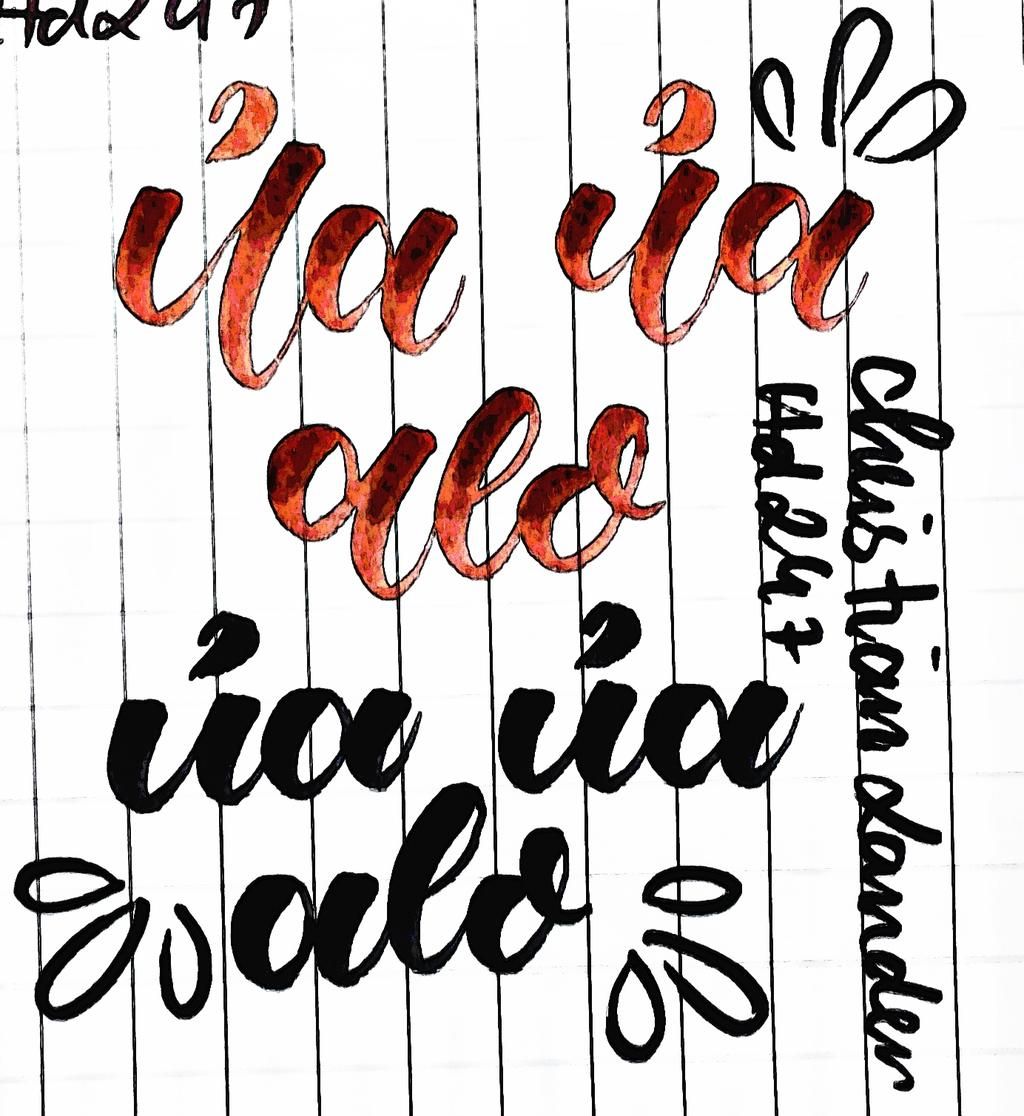 Hd247
ủa ủa
alo
ủa ủa
alo
christian dander
Hd247